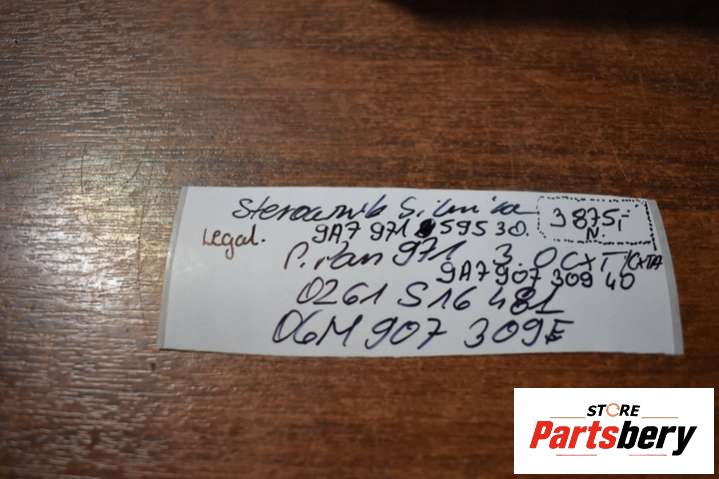 Sterownik Silnika
3875,-
N.
Legal.
9A7 971 595 30.
P.Pan 971 3.0 CXT/CXTA
9A7 907 309 40
0261 S16 481
06M 907 309E
STORE
Partsbery